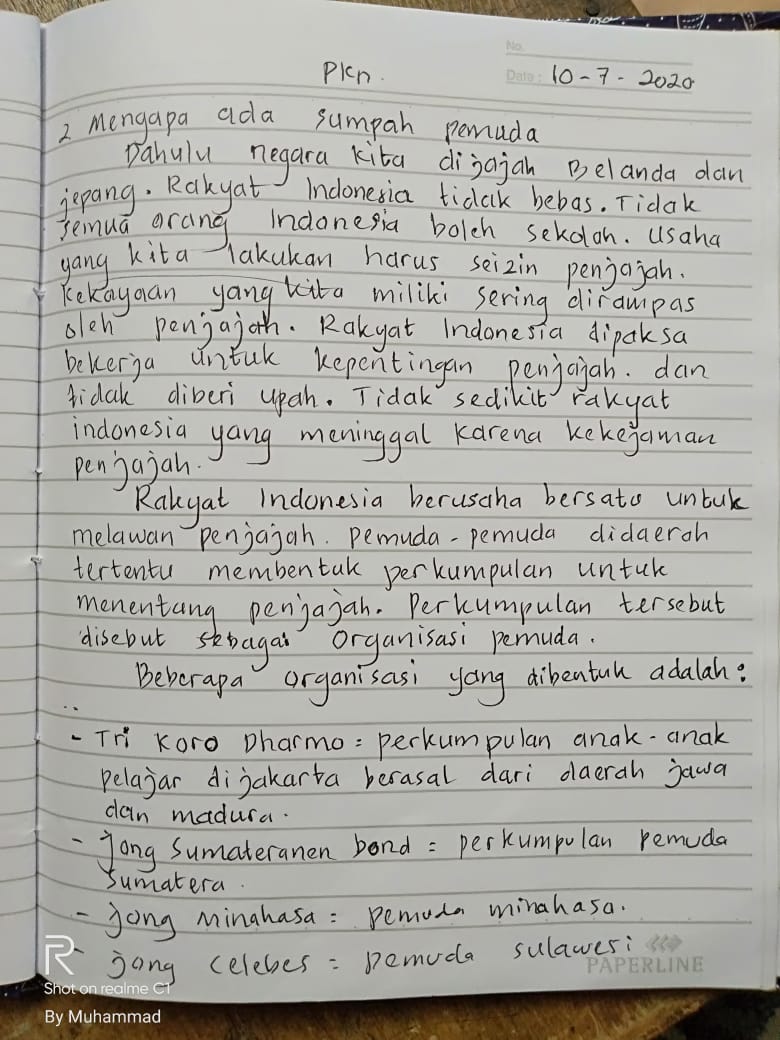 No.
PKn.
Date: 10-7-2020
2 Mengapa ada sumpah pemuda
Dahulu negara kita dijajah Belanda dan
jepang. Rakyat Indonesia tidak bebas. Tidak
semua orang Indonesia boleh sekolah. Usaha
yang kita lakukan harus seizin penjajah.
Kekayaan yang kita miliki sering dirampas
oleh penjajah. Rakyat Indonesia dipaksa
bekerja untuk kepentingan penjajah. dan
tidak diberi upah. Tidak sedikit rakyat
indonesia yang meninggal karena kekejaman
penjajah.
Rakyat Indonesia berusaha bersatu untuk
melawan penjajah. pemuda-pemuda didaerah
tertentu membentuk perkumpulan untuk
menentang penjajah. Perkumpulan tersebut
disebut sebagai organisasi pemuda.
Beberapa organisasi yang dibentuk adalah:
..
- Tri Koro Dharmo = perkumpulan anak-anak
pelajar dijakarta berasal dari daerah jawa
dan madura.
- Jong Sumateranen bond = perkumpulan pemuda
Sumatera.
- jong Minahasa = pemuda minahasa.
- jong celebes = pemuda sulawesi
PAPERLINE
R
Shot on realme C1
By Muhammad